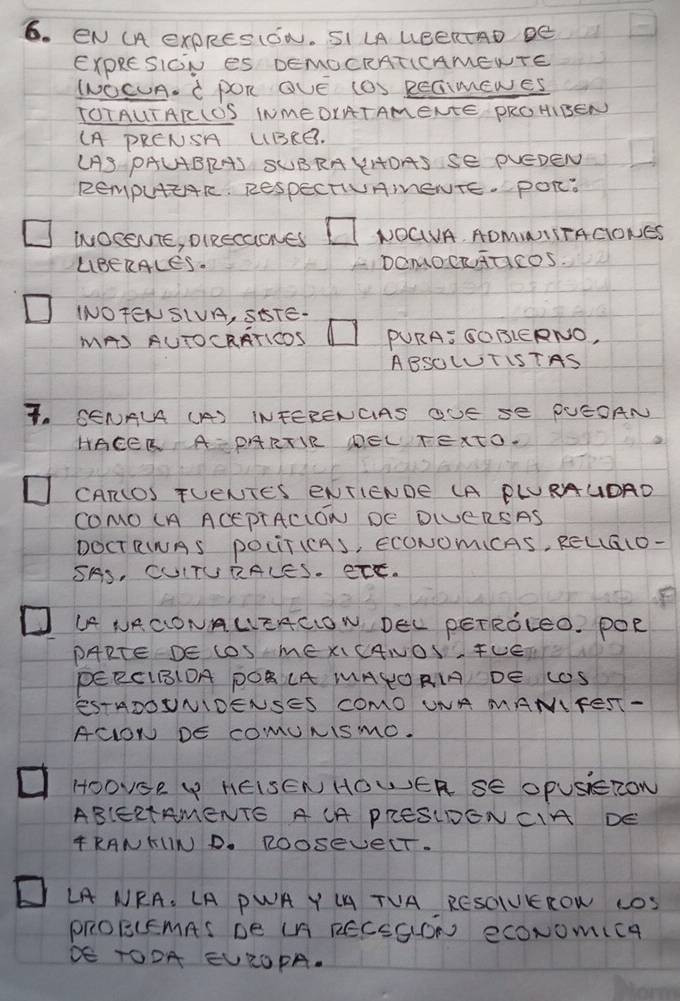 6. EN LA EXPRESIÓN. SI LA LIBERTAD DE
EXPRESIÓN ES DEMOCRATICAMENTE
INOCUA. ¿ POR QUÉ LOS REGIMENES
TOTALITARIOS INMEDIATAMENTE PROHIBEN
LA PRENSA LIBRE?.
LAS PALABRAS SUBRAYADAS SE PUEDEN
REMPLAZAR. RESPECTIVAMENTE. POR:
INOCENTE, DIRECCIONES
LIBERALES.
NOCIVA. ADMINISTACIONES
DEMOCRÁTICOS.
INOFENSIVA, SISTE-
MAS AUTOCRÁTICOS
PURA: GOBIERNO,
ABSOLUTISTAS
7. SEÑALA LAS INFERENCIAS QUE SE PUEDAN
HACER A PARTIR DEL TEXTO.
CARLOS FUENTES ENTIENDE LA PLURALIDAD
COMO LA ACEPTACIÓN DE DIVERSAS
DOCTRINAS POLÍTICAS, ECONOMICAS, RELIGIO-
SAS, CULTURALES. ETC.
LA NACIONALIZACION DEL PETRÓLEO. POR
PARTE DE LOS MEXICANOS, FUE
PERCIBIDA POR LA MAYORIA DE LOS
ESTADOUNIDENSES COMO UNA MANIFEST-
ACION DE COMUNISMO.
HOOVER Y HEISENHOWER SE OPUSIERON
ABIERTAMENTE A LA PRESIDENCIA DE
FRANKLIN D. ROOSEVELT.
LA NRA. LA PWA Y LA TVA RESOLVIERON LOS
PROBLEMAS DE LA RECESION ECONOMICA
DE TODA EUROPA.
Norm